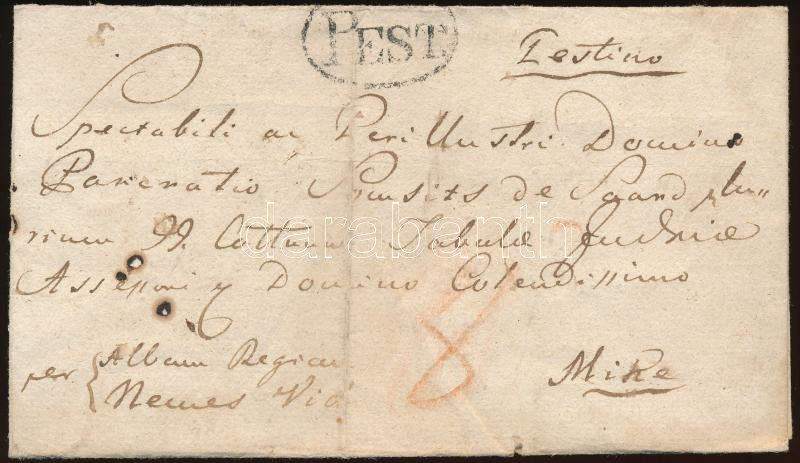 PEST.
Pestino
Spectabili ac Perillustri Domino
Pancratio Somsits de Saard plu=
rium II. Cottuum Tabulae Judriae
Assessori & Domino Colendissimo
per { Albam Regiam
Nemes Vid
8
Mike
darabanth